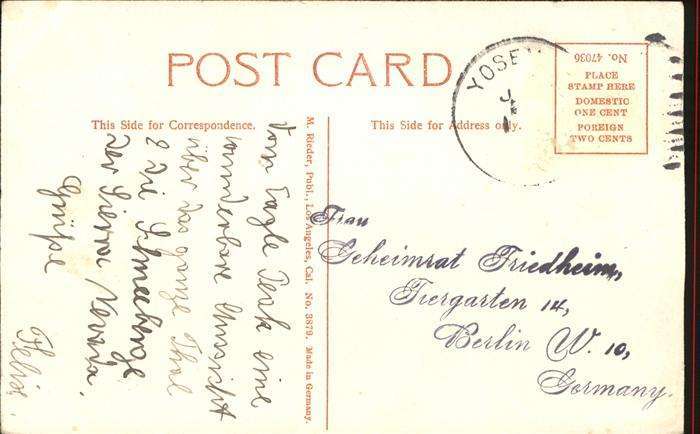 POST CARD
YOSE
No. 47036
PLACE
STAMP HERE
DOMESTIC
ONE CENT
FOREIGN
TWO CENTS
This Side for Correspondence.
This Side for Address only.
Vom Eagle Peak eine
wunderbare Aussicht
über das ganze Thal
& die Schneeberge
der Sierra Nevada.
Grüße
Felix.
M. Rieder, Publ., Los Angeles, Cal. No. 3879. Made in Germany.
Frau
Geheimrat Friedheim,
Tiergarten 14,
Berlin W. 10,
Germany.